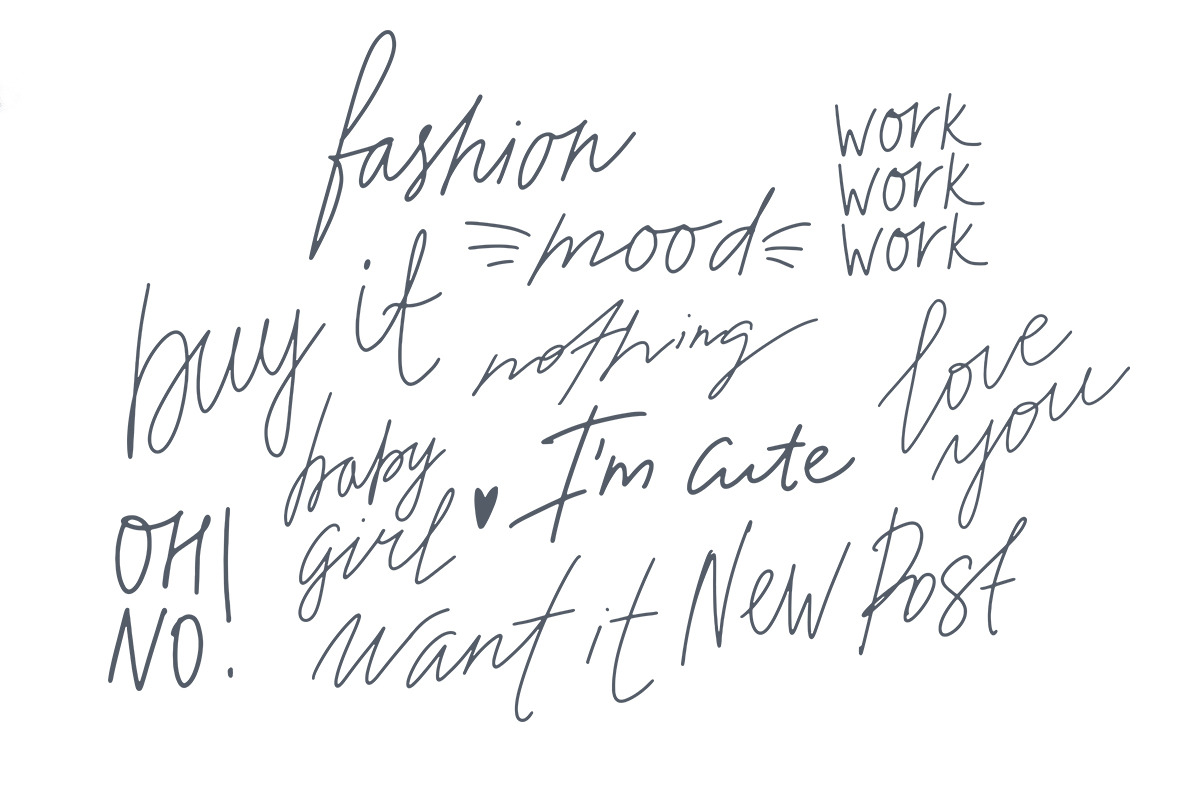 fashion
work
work
work
mood
buy it
nothing
love
you
baby
girl
I'm cute
OH
NO!
Want it
New Post